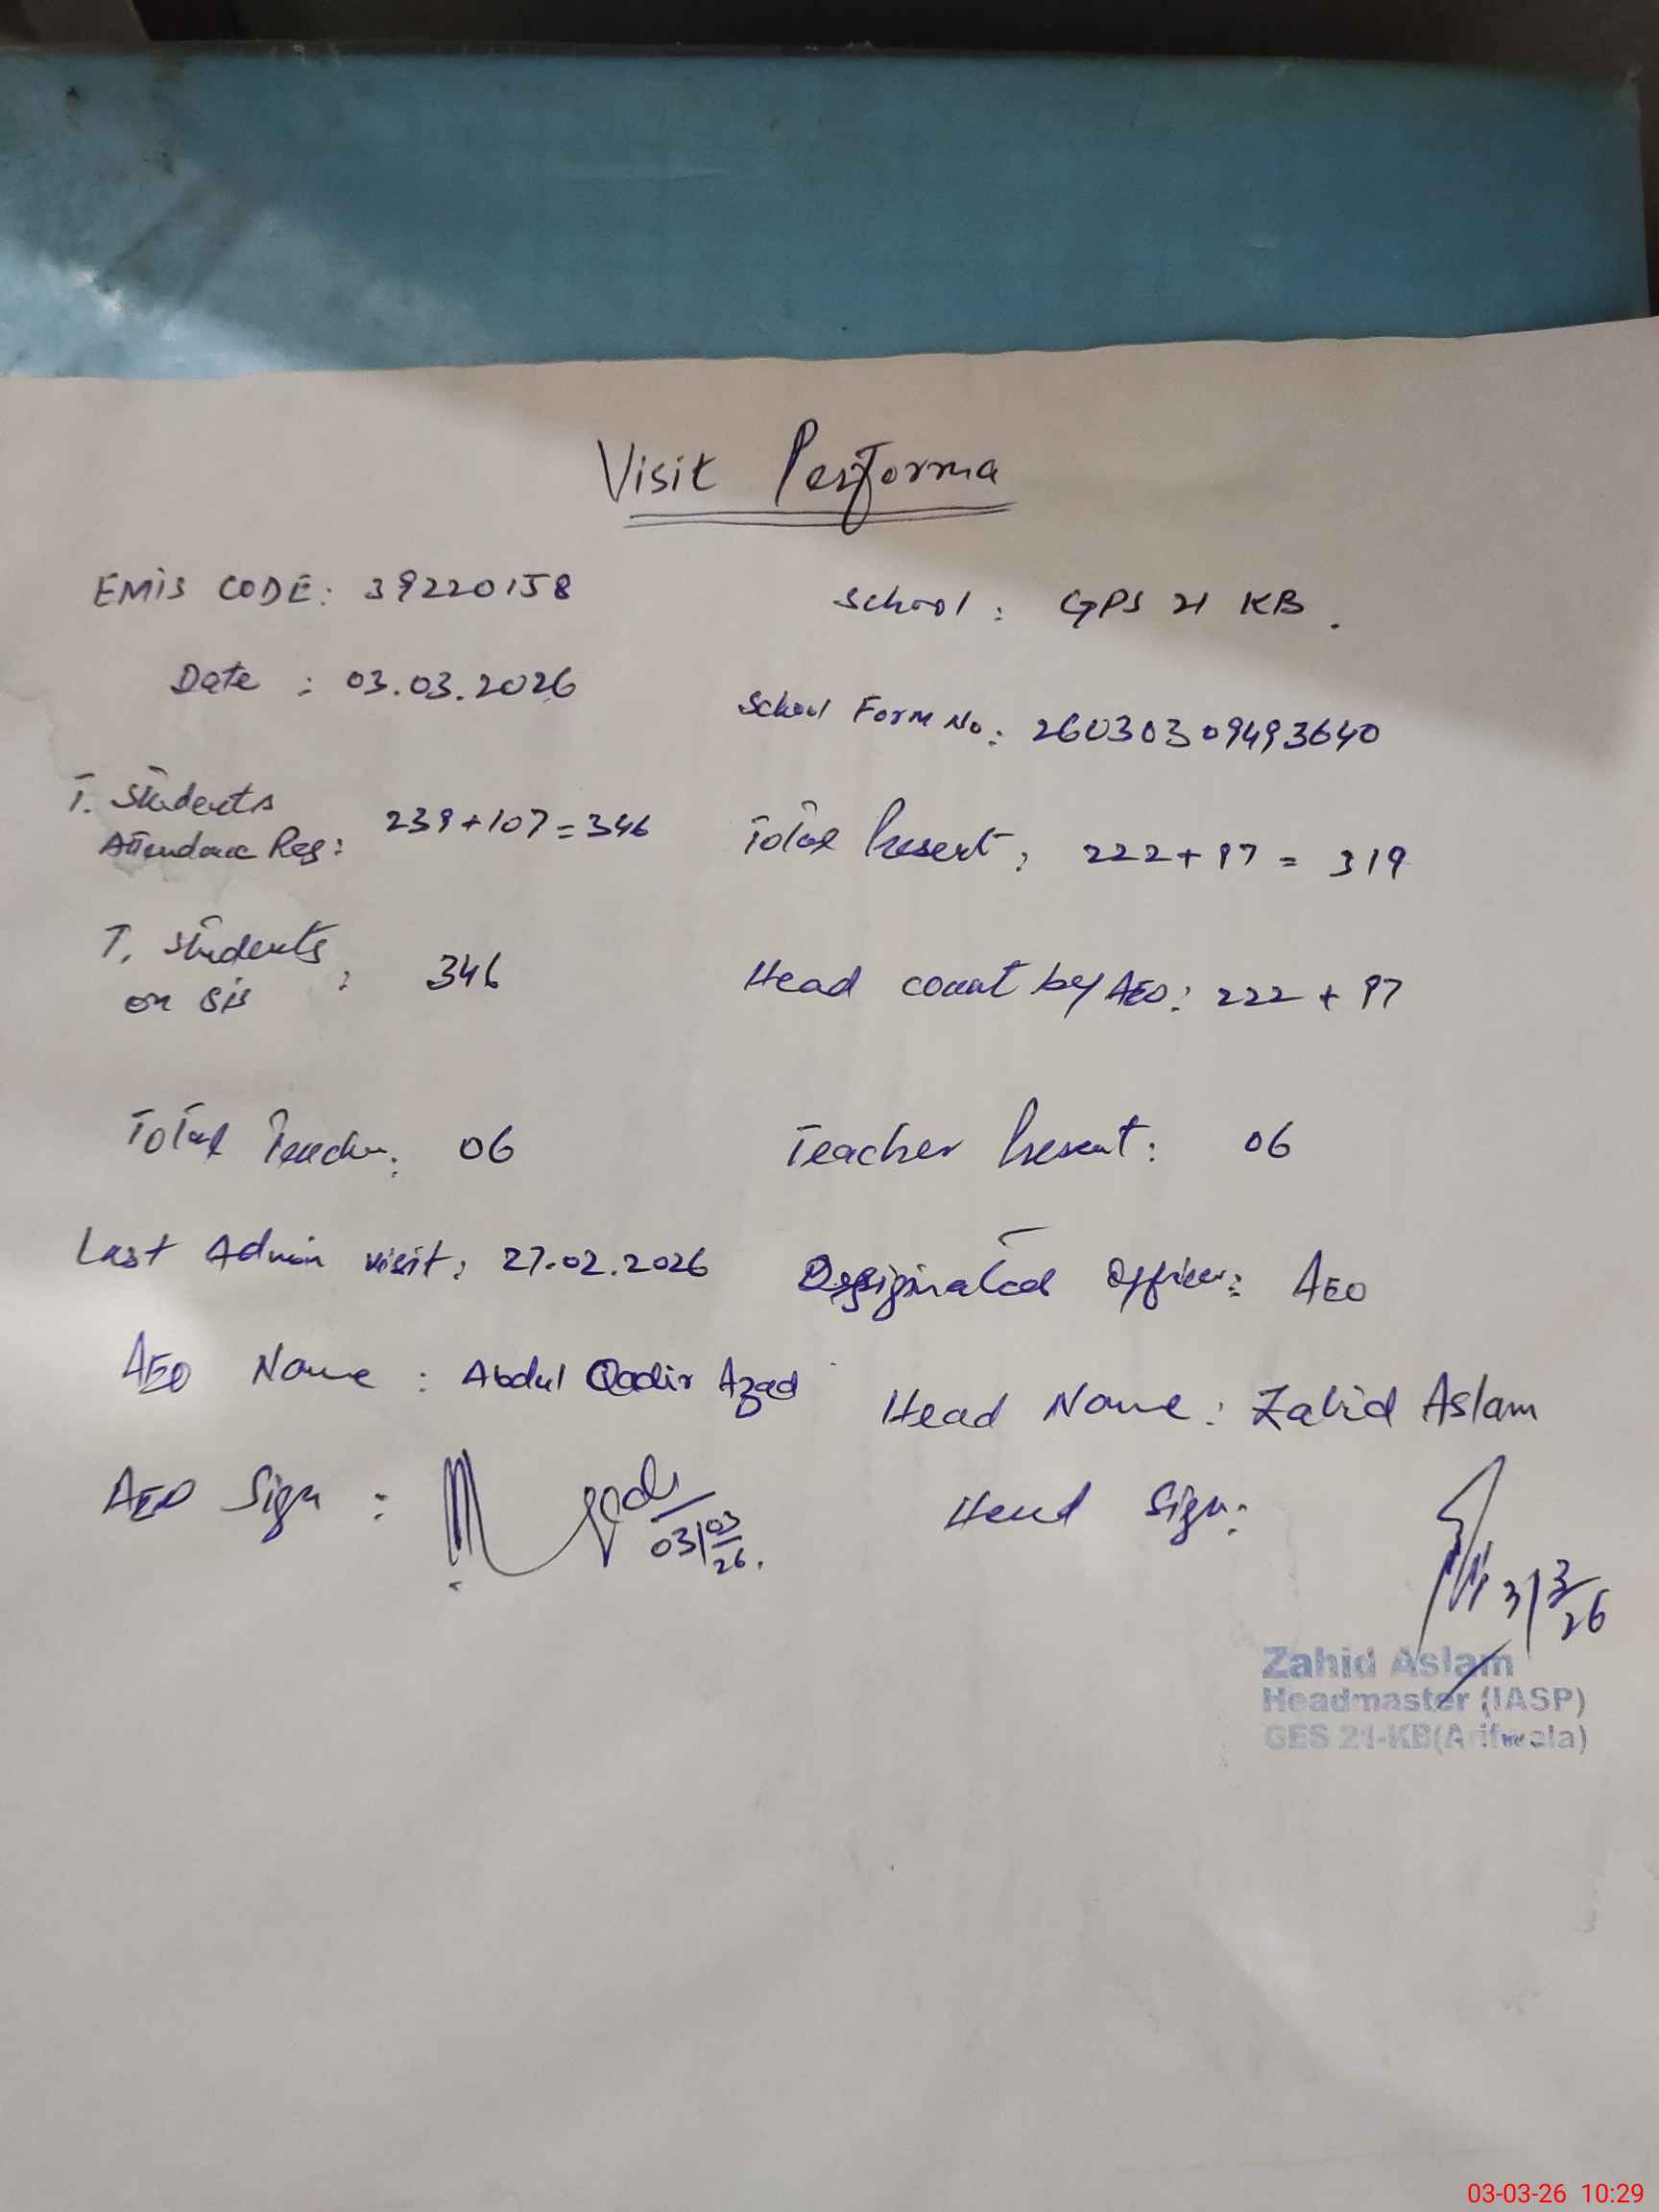 Visit Performa
EMIS CODE: 39220158
School: GPS 21 KB.
Date : 03.03.2026
School Form No: 26030309493640
T. Students
Attendance Reg: 239+107=346
Total Present: 222+97 = 319
T. Students
on SIS : 346
Head count by AEO: 222 + 97
Total Teacher: 06
Teacher Present: 06
Last Admin visit: 27.02.2026
Designated Officer: AEO
AEO Name : Abdul Qadir Azad
Head Name: Zahid Aslam
AEO Sign :
03/03/26.
Head Sign:
3/3/26
Zahid Aslam
Headmaster (IASP)
GES 21-KB(Arifwala)
03-03-26 10:29